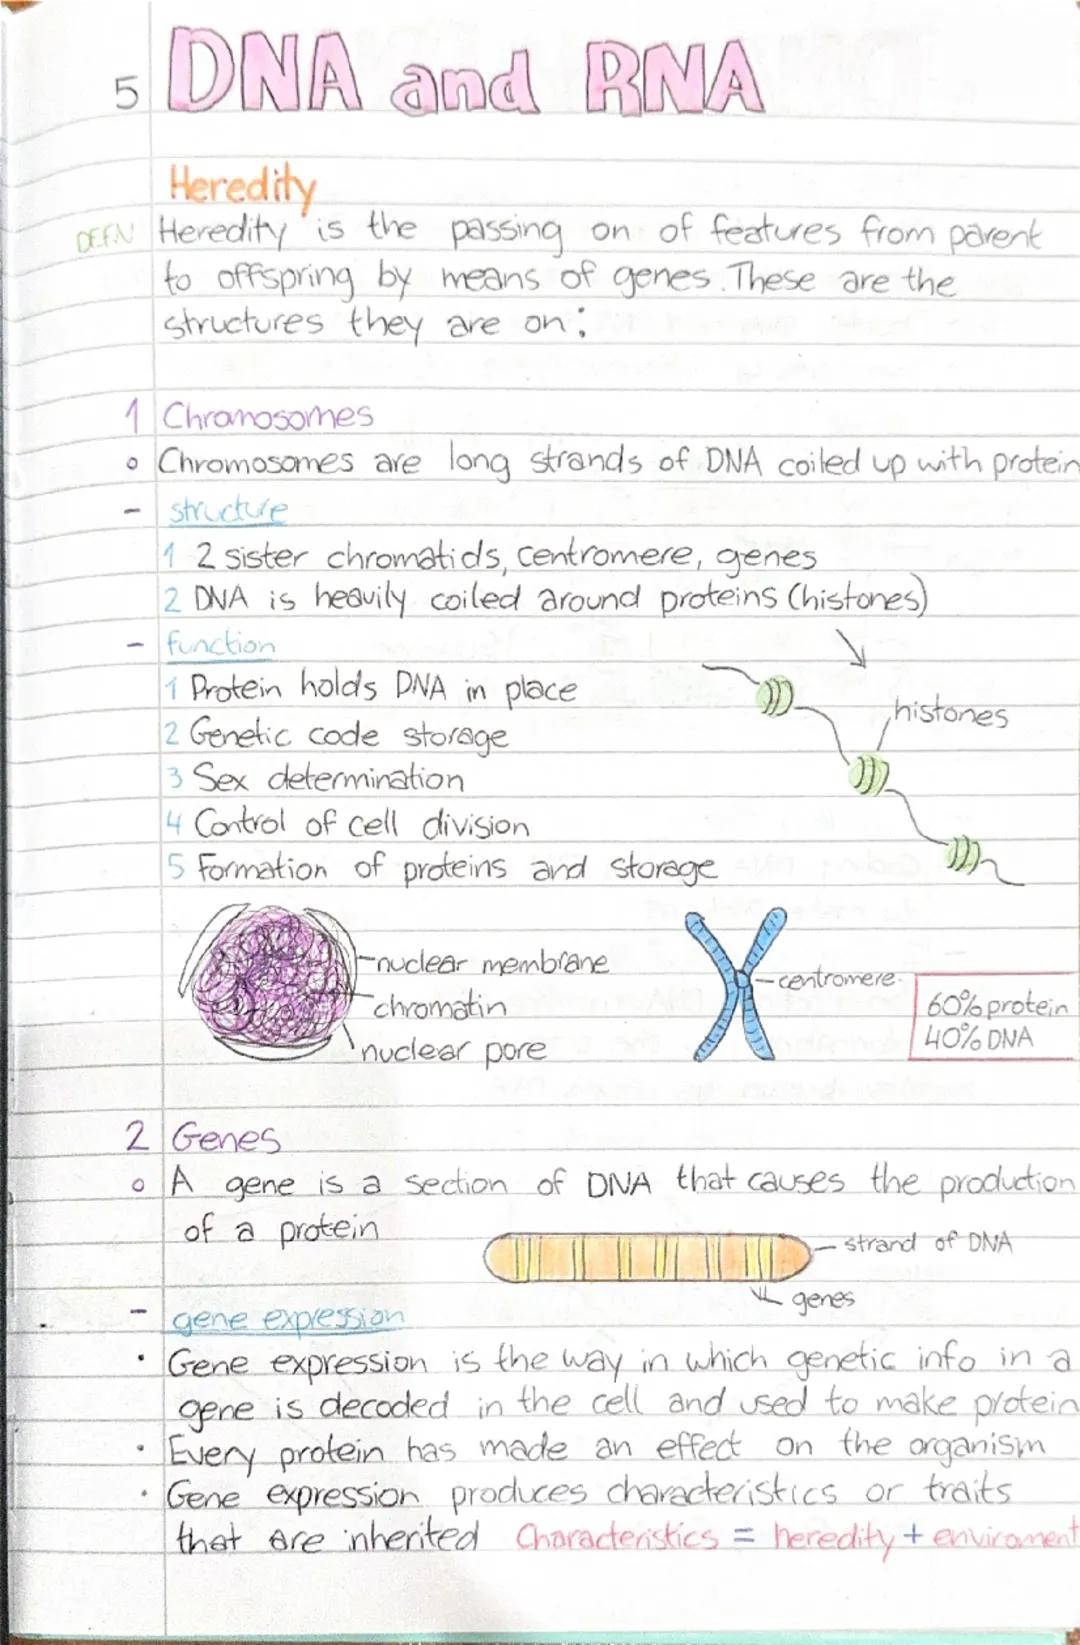 5 DNA and RNA
Heredity
DEFN Heredity is the passing on of features from parent
to offspring by means of genes. These are the
structures they are on:
1 Chromosomes
Chromosomes are long strands of DNA coiled up with protein
- structure
1 2 sister chromatids, centromere, genes
2 DNA is heavily coiled around proteins (histones)
- function
1 Protein holds DNA in place
histones
2 Genetic code storage
3 Sex determination
4 Control of cell division
5 Formation of proteins and storage
nuclear membrane
centromere
chromatin
60% protein
40% DNA
nuclear pore
2 Genes
A gene is a section of DNA that causes the production
of a protein
strand of DNA
genes
- gene expression
• Gene expression is the way in which genetic info in a
gene is decoded in the cell and used to make protein
• Every protein has made an effect on the organism
• Gene expression produces characteristics or traits
that are inherited Characteristics = heredity + enviroment